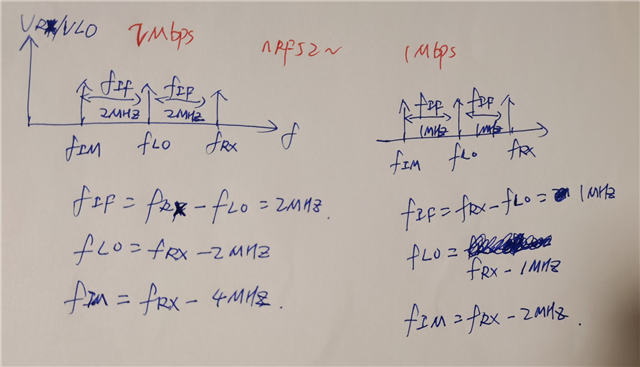 VRX/VLO
2Mbps
nRF52~
1Mbps
fIF fIF
2MHZ 2MHZ
fIM fLO fRX f
fIF fIF
1MHZ 1MHZ
fIM fLO fRX
fIF = fRX - fLO = 2MHZ
fLO = fRX - 2MHZ
fIM = fRX - 4MHZ.
fIF = fRX - fLO = 1MHZ
fLO =
fRX - 1MHZ
fIM = fRX - 2MHZ.